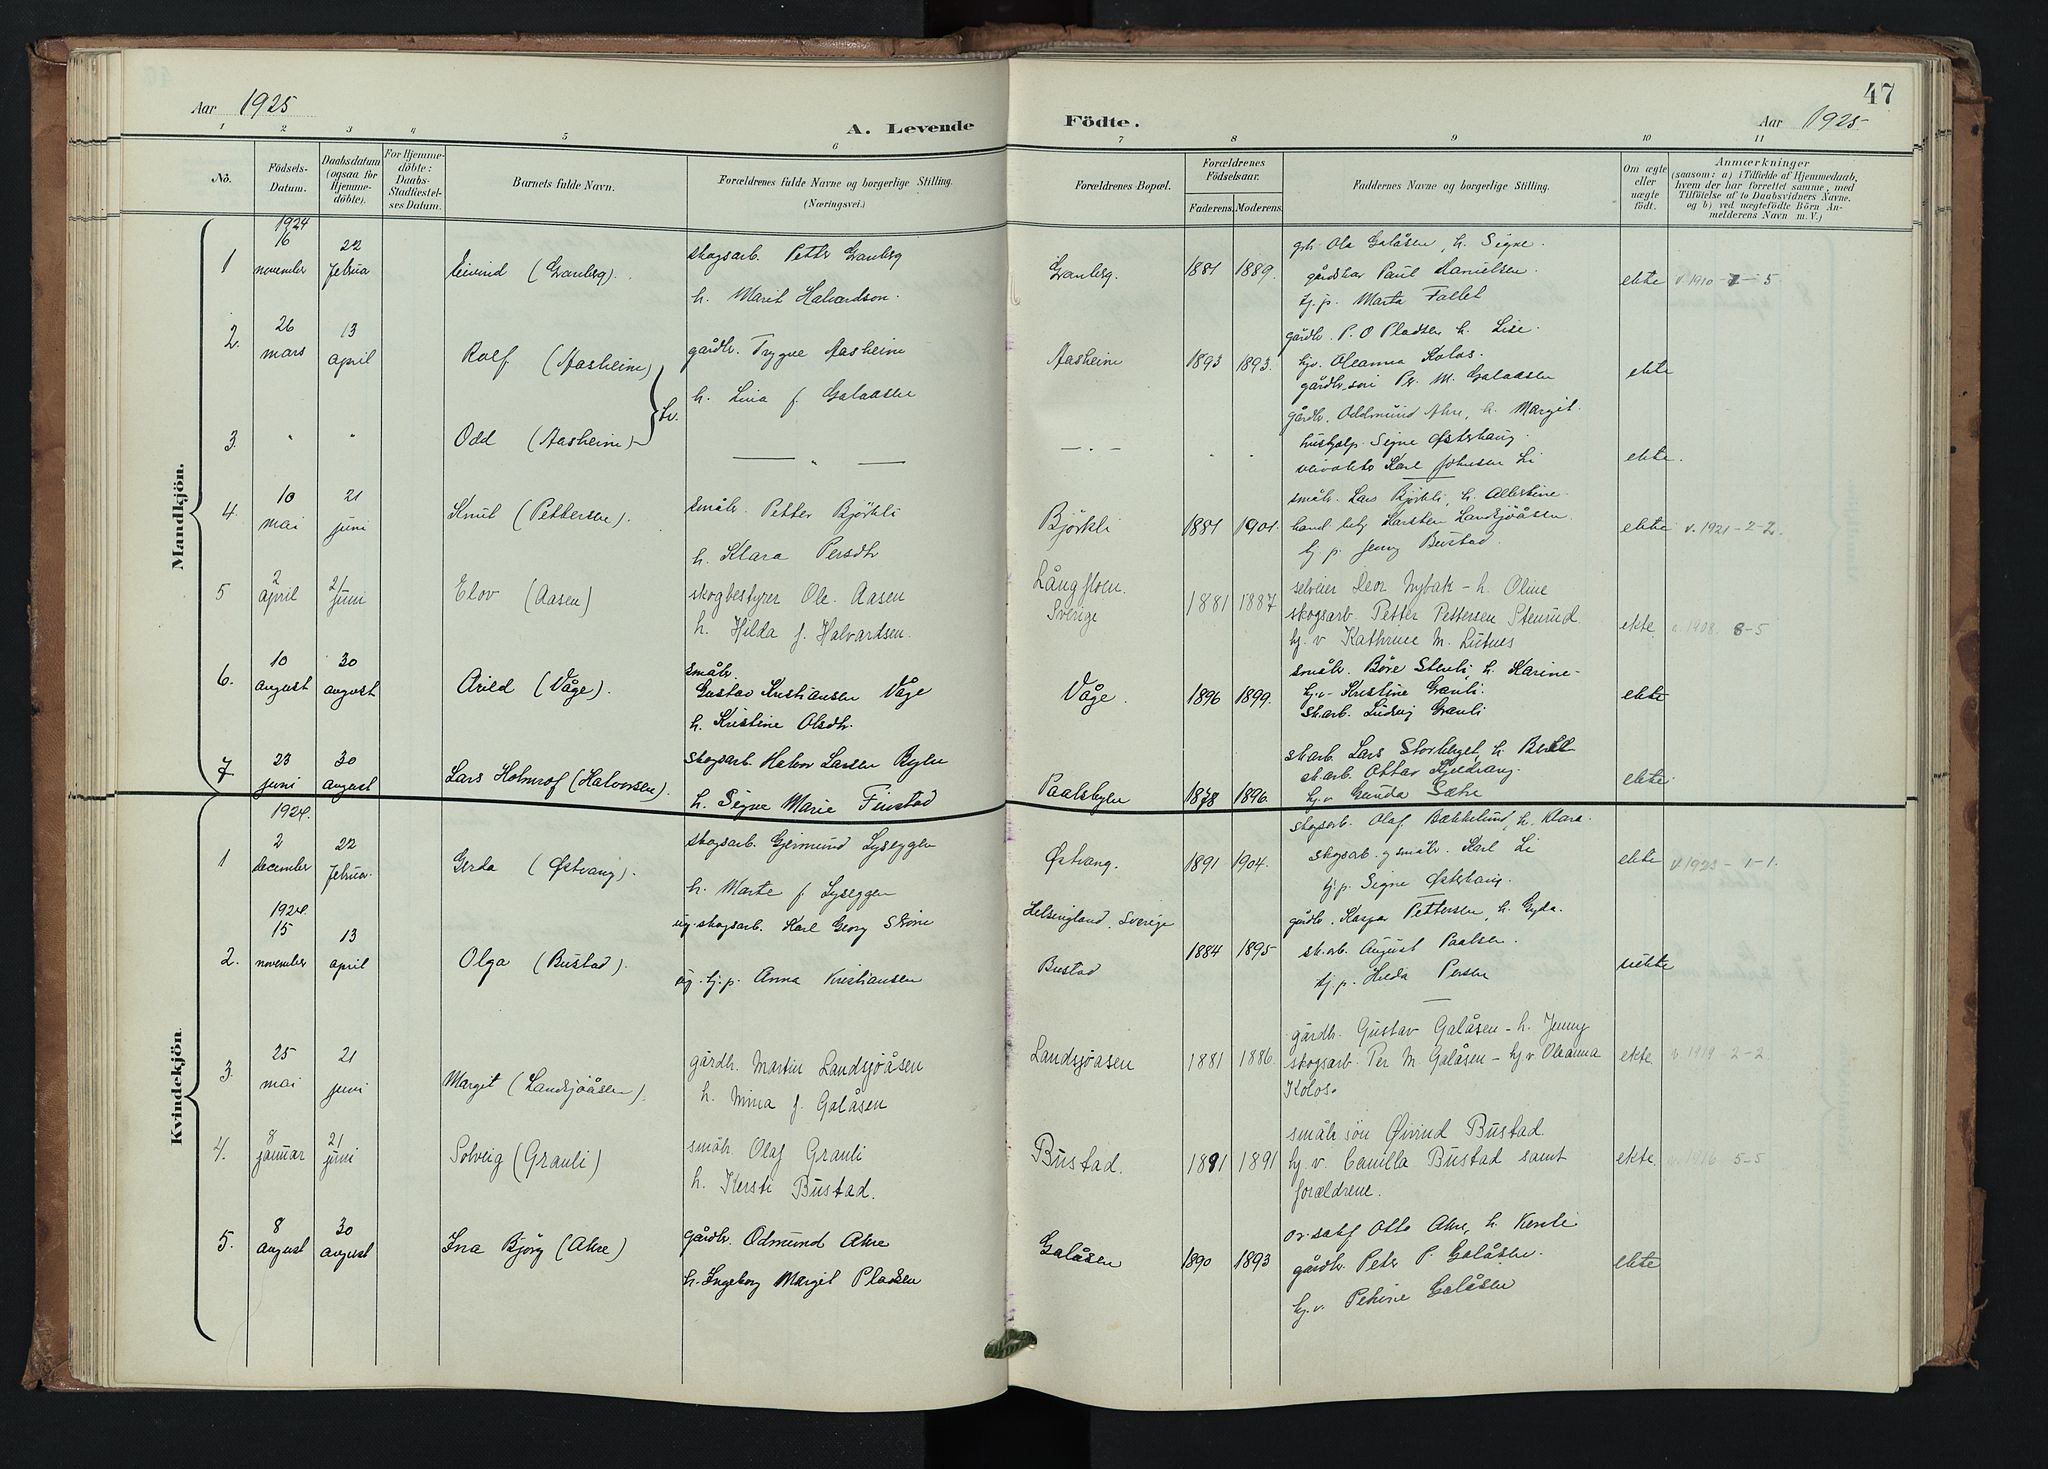 47
Aar 1925
A. Levende Födte.
Aar 1925
1 2 3 4 5 6 7 8 9 10 11
No.
Födsels-Datum.
Daabsdatum (ogsaa for Hjemme-döbte).
For Hjemme-döbte: Daabs-Stadfæstel-ses Datum.
Barnets fulde Navn.
Forældrenes fulde Navne og borgerlige Stilling.
(Næringsvei.)
Forældrenes Bopæl.
Forældrenes Födselsaar.
Faderens. Moderens.
Faddernes Navne og borgerlige Stilling.
Om ægte eller uægte födt.
Anmærkninger
(saasom: a) i Tilfælde af Hjemmedaab, hvem der har forrettet samme, med Tilföielse af to Daabsvidners Navne. og b) ved uægtefödte Börn An-melderens Navn m. V.)
Mandkjön.
1 1924 16 november 22 februar Eivind (Granberg).
skogsarb. Petter Granberg
h. Marit Halvardson.
Granberg. 1881 1889.
grb. Ola Galåsen, h. Signe.
gårdbr Paul Danielsen.
tj. p. Marta Fallet
ekte v. 1910-1-5.
2. 26 mars 13 april Rolf (Aasheim)
gårdbr. Trygve Aasheim
h. Lina f. Galaasen
Aasheim 1893 1893.
gårdbr. P. O Pladsen h. Lise.
hv. Oleanna Kolos.
gårdbr. søn Per M. Galaasen
ekte
3. " " Odd (Aasheim) tv.
— " —
— " — " "
gårdbr. Oddmund Akre, h. Margit.
hushjelp. Signe Østerhaug.
veivokter Karl Johnsen Li
ekte.
4. 10 mai 21 juni Knut (Pettersen).
småbr. Petter Bjørkli
h. Klara Persdtr
Björkli 1881 1901.
småbr. Lars Bjørkli, h. Albertine.
hand. betj Karsten Landsjöåsen.
tj. p. Jenny Bustad.
ekte v. 1921-2-2.
5 2 april 21 juni Elov (Aasen)
skogbestyrer Ole Aasen
h. Hilda f. Halvardsen.
Långfloen. Sverige 1881 1887
selveier Deor Nybak - h. Oline
skogsarb. Petter Pettersen Stenrud
hj. v Kathrine M. Lutnes
ekte. v. 1908. 8-5
6. 10 august 30 august Arild (Våge).
småbr.
Gustav Kristiansen Våge
h. Kristine Olsdtr.
Våge. 1896 1899.
småbr. Böre Stenli, h. Karine-
hj. v- Kristine Grænli.
sk. arb. Ludvig Grænli
ekte
7 23 juni 30 august Lars Holmrof (Halvorsen).
skogsarb. Halvor Larsen Byln
h. Signe Marie Finstad
Paalsbyln 1878 1896.
sk arb Lars Storberget, h. Berit
sk. arb. Ottar Kjeldvang.
hj. v Gunda Sætre
ekte
Kvindekjön.
1 1924. 2 december 22 februar. Gerda (Østvang).
skogsarb. Gjermund Lyseggen
h. Marte f Lyseggen
Østvang. 1891 1904.
skogsarb. Olaf Bækkelund, h. Klara.
skogsarb. og småbr. Karl Li
tj. p. Signe Østerhaug.
ekte v 1923-1-1.
2. 1924. 15 november 13 april Olga (Bustad).
ug. skogsarb. Karl Georg Sköne
ug. tj. p. Anna Kristiansen
Helsingland. Sverige
Bustad 1884 1895
gårdbr. Kaspar Pettersen, h. Gyda.
sk. arb. August Paalsen.
tj. p. Hilda Persen
uekte
3. 25 mai 21 juni Margit (Landsjöåsen).
gårdbr. Martin Landsjöåsen
h. Mina f. Galåsen
Landsjöasen 1881 1886.
gårdbr. Gustav Galåsen - h. Jenny
skogsarb. Per M. Galåsen - hj. v. Oleanna
Kolos.
ekte v. 1919-2-2.
4. 8 januar 21 juni Solveig (Granli)
småbr. Olaf Granli
h. Kersti Bustad.
Bustad. 1891 1891
småbr søn Øivind Bustad.
hj. v. Camilla Bustad samt
forældrene.
ekte. v. 1916 5-5
5. 8 august 30 august Ina Bjørg (Akre)
gårdbr. Odmund Akre
h. Ingeborg Margit Pladsen
Galåsen 1890 1893
Otto Akre, h. Kersti
gårdbr. Peter P. Galåsen.
hj. v. Petrine Galåsen
ekte